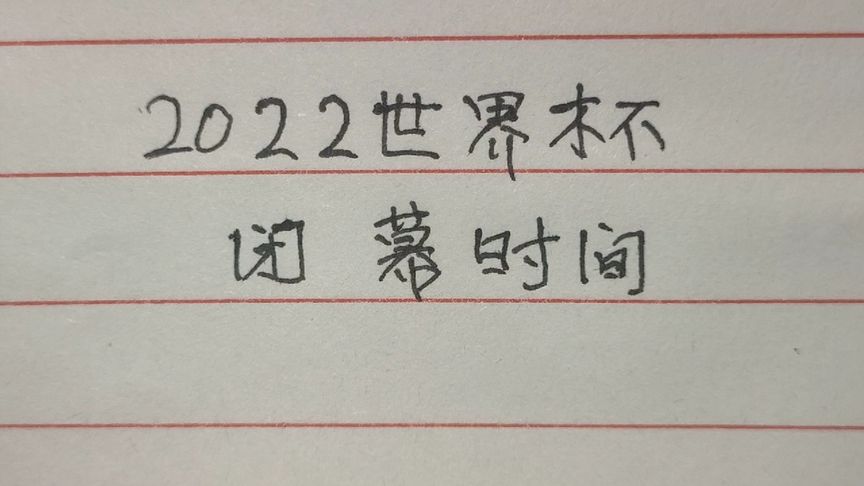 2022世界杯
闭幕时间